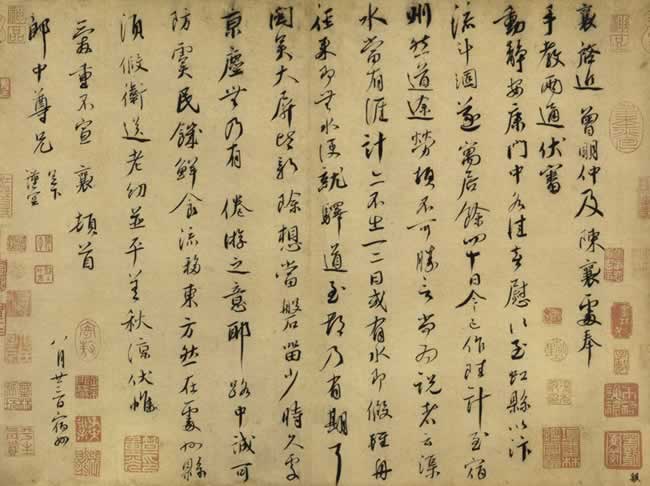 襄啓近 曾明仲及 陳襄處奉
手教兩通伏審
動靜安康門中各佳喜慰以至虹縣以汴
流斗涸遂寓居餘四十日今已作陸計至宿
州然道途勞頓不可勝言尚為說者云渠
水當有涯計亦不出一二日或有水即假輕舟
徑來即無水便就驛道至都乃有期耳
閣吳大屏皆新除想當磐留少時久處
京塵無乃有 倦遊之意耶 路中誠可
防虞民饑鮮食流移東方然在處州縣
須假衛送老幼並平善秋涼伏惟
愛重不宣 襄頓首
郎中尊兄 足下
謹空
八月廿三日宿州